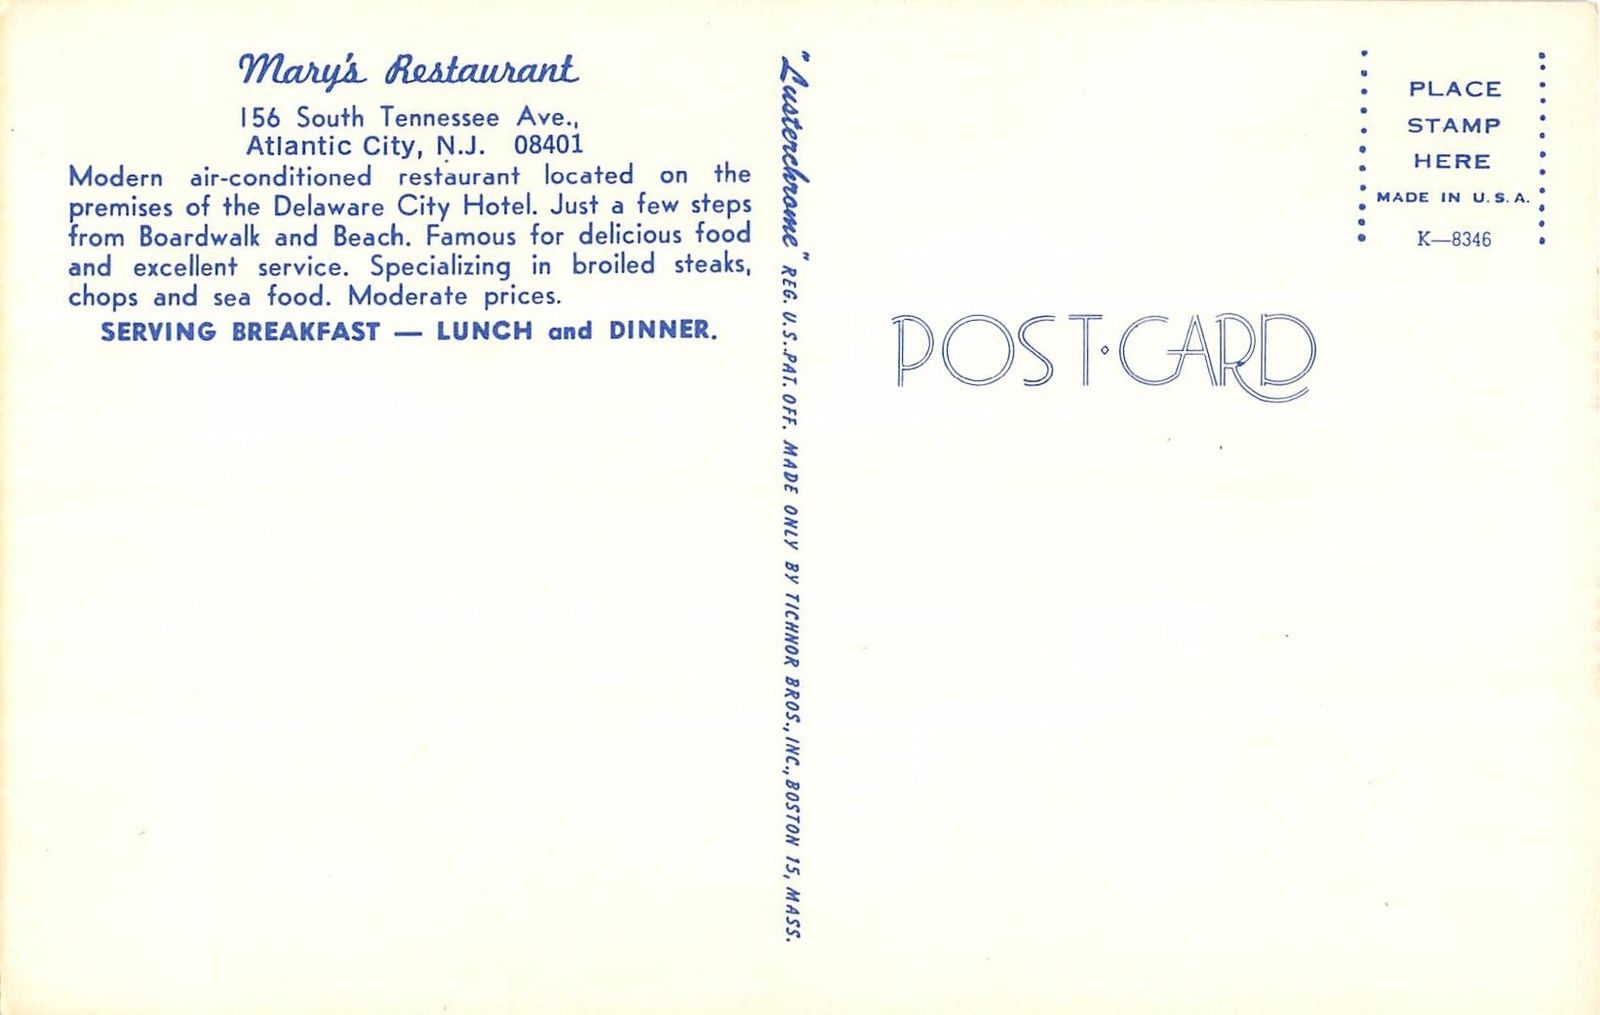 Mary's Restaurant
156 South Tennessee Ave.,
Atlantic City, N.J. 08401
Modern air-conditioned restaurant located on the
premises of the Delaware City Hotel. Just a few steps
from Boardwalk and Beach. Famous for delicious food
and excellent service. Specializing in broiled steaks,
chops and sea food. Moderate prices.
SERVING BREAKFAST — LUNCH and DINNER.
"Lusterchrome" REG. U.S. PAT. OFF. MADE ONLY BY TICHNOR BROS., INC., BOSTON 15, MASS.
PLACE
STAMP
HERE
MADE IN U.S.A.
K—8346
POST·CARD